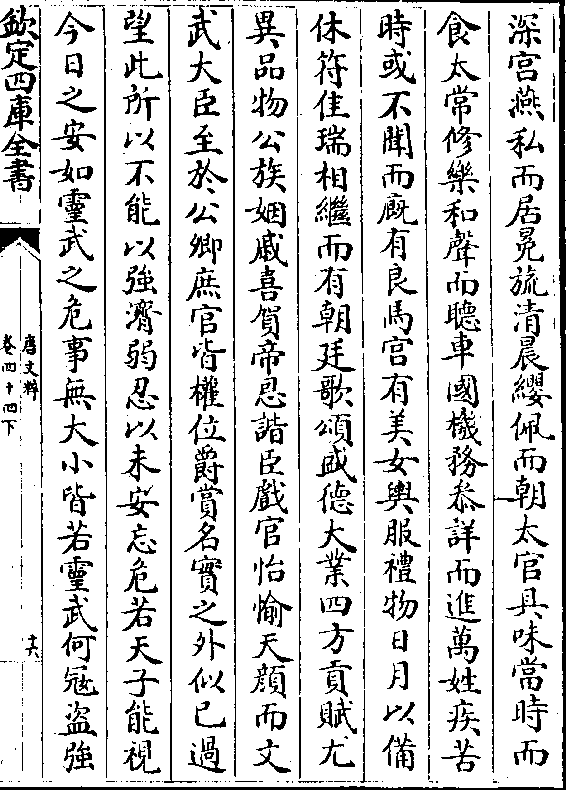 深宮燕私而居冕旒清晨纓佩而朝太官具味當時而
食太常修樂和聲而聽車國機務叅詳而進萬姓疾苦
時或不聞而廐有良馬宮有美女輿服禮物日月以備
休符佳瑞相繼而有朝廷歌頌盛德大業四方貢賦尤
異品物公族姻戚喜賀帝恩諧臣戲官怡愉天顔而文
武大臣至於公卿庶官皆權位爵賞名實之外似已過
望此所以不能以強濟弱忍以未安忘危若天子能視
今日之安如靈武之危事無大小皆若靈武何冦盜強
欽定四庫全書
唐文粹
卷四十四下
十六